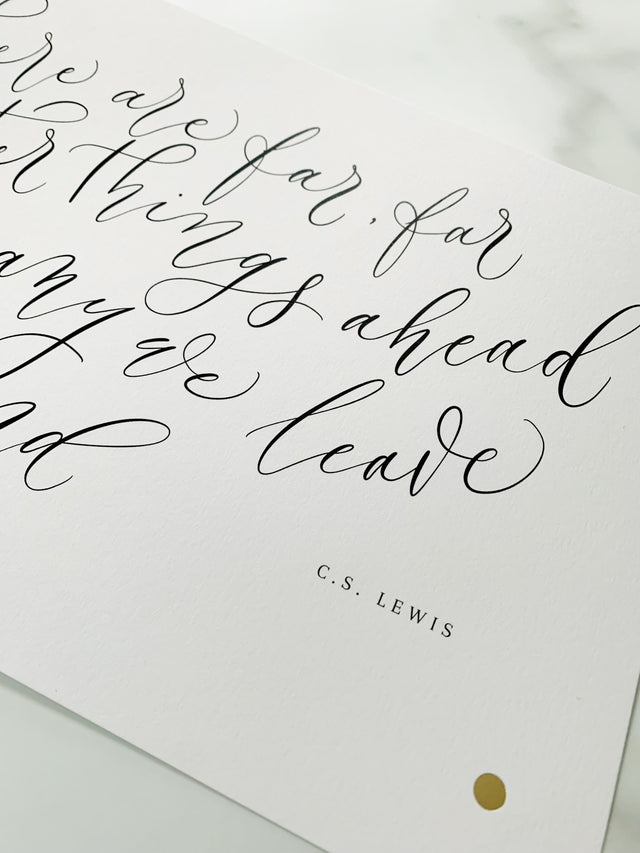 ere are far, far
er things ahead
any we leave
nd
C.S. LEWIS